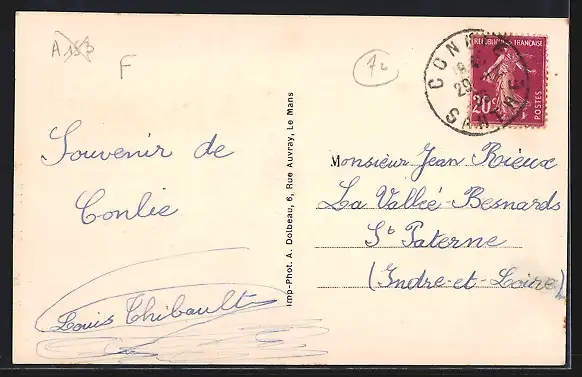 A 153
F
72
REPUBLIQUE FRANÇAISE
20c
POSTES
CON
29
SARTHE
Souvenir de
Conlie
Louis Thibault
Imp-Phot. A. Dolbeau, 6, Rue Auvray, Le Mans
Monsieur Jean Rieux
La Vallée-Besnards
St Paterne
(Indre-et-Loire)